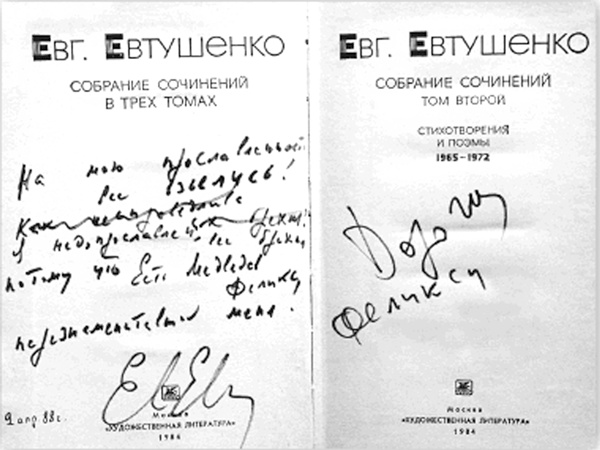 Евг. Евтушенко
СОБРАНИЕ СОЧИНЕНИЙ
В ТРЕХ ТОМАХ
На мою прославленность
все взъелись!
У недопрославленных
потому что Есть Медведев
Феликс
меня.
2 апр. 88 г.
Москва
«ХУДОЖЕСТВЕННАЯ ЛИТЕРАТУРА»
1984
Евг. Евтушенко
СОБРАНИЕ СОЧИНЕНИЙ
ТОМ ВТОРОЙ
СТИХОТВОРЕНИЯ
И ПОЭМЫ
1965–1972
Дорогому
Феликсу
Москва
«ХУДОЖЕСТВЕННАЯ ЛИТЕРАТУРА»
1984